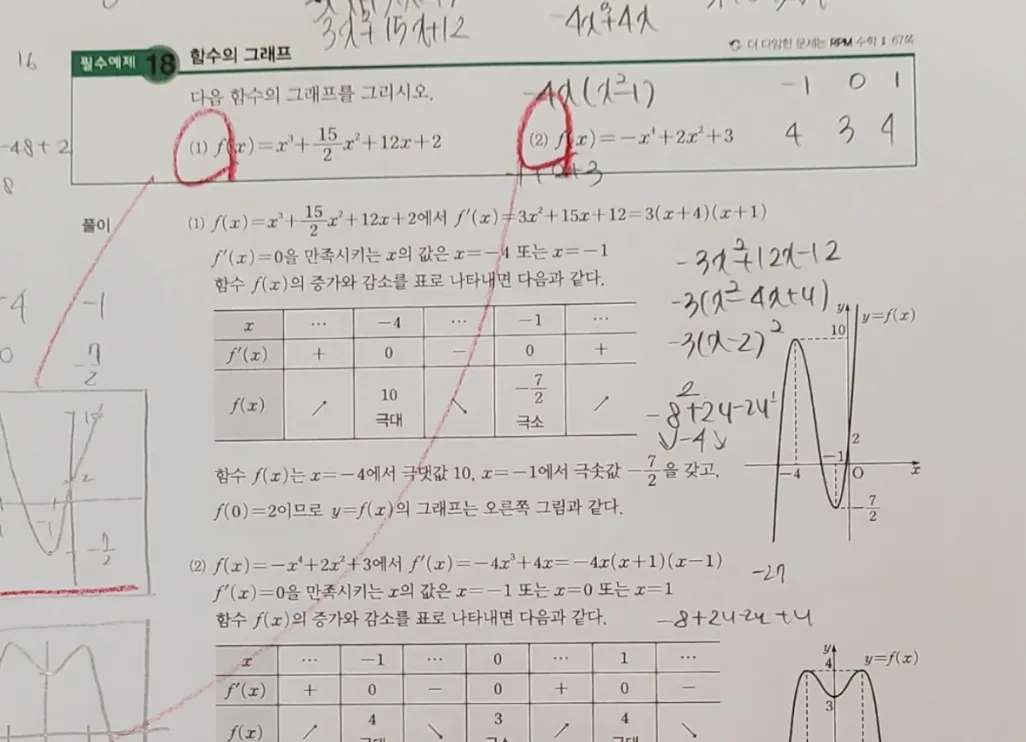 3x²+15x+12
-4x³+4x
16
필수예제 18 함수의 그래프
더 다양한 문제는 RPM 수학Ⅱ 67쪽
다음 함수의 그래프를 그리시오.
-4x(x²-1)
-1 0 1
(1) f(x)=x³+15/2x²+12x+2
(2) f(x)=-x⁴+2x²+3
4 3 4
-48+2
8
풀이
(1) f(x)=x³+15/2x²+12x+2에서 f'(x)=3x²+15x+12=3(x+4)(x+1)
f'(x)=0을 만족시키는 x의 값은 x=-4 또는 x=-1
-3x²+12x-12
함수 f(x)의 증가와 감소를 표로 나타내면 다음과 같다.
-3(x²-4x+4)
-4 -1
x … -4 … -1 …
y y=f(x)
10
-3(x-2)²
0 -7/2
f'(x) + 0 - 0 +
f(x) ↗ 10 극대 ↘ -7/2 극소 ↗
2
-8+24-24
↘-4↘
2
-1
-4 O x
-7/2
2
-1
-7/2
함수 f(x)는 x=-4에서 극댓값 10, x=-1에서 극솟값 -7/2을 갖고,
f(0)=2이므로 y=f(x)의 그래프는 오른쪽 그림과 같다.
(2) f(x)=-x⁴+2x²+3에서 f'(x)=-4x³+4x=-4x(x+1)(x-1)
-27
f'(x)=0을 만족시키는 x의 값은 x=-1 또는 x=0 또는 x=1
함수 f(x)의 증가와 감소를 표로 나타내면 다음과 같다.
-8+24-24+4
x … -1 … 0 … 1 …
f'(x) + 0 - 0 + 0 -
f(x) ↗ 4 극대 ↘ 3 극소 ↗ 4 극대 ↘
y y=f(x)
4
3